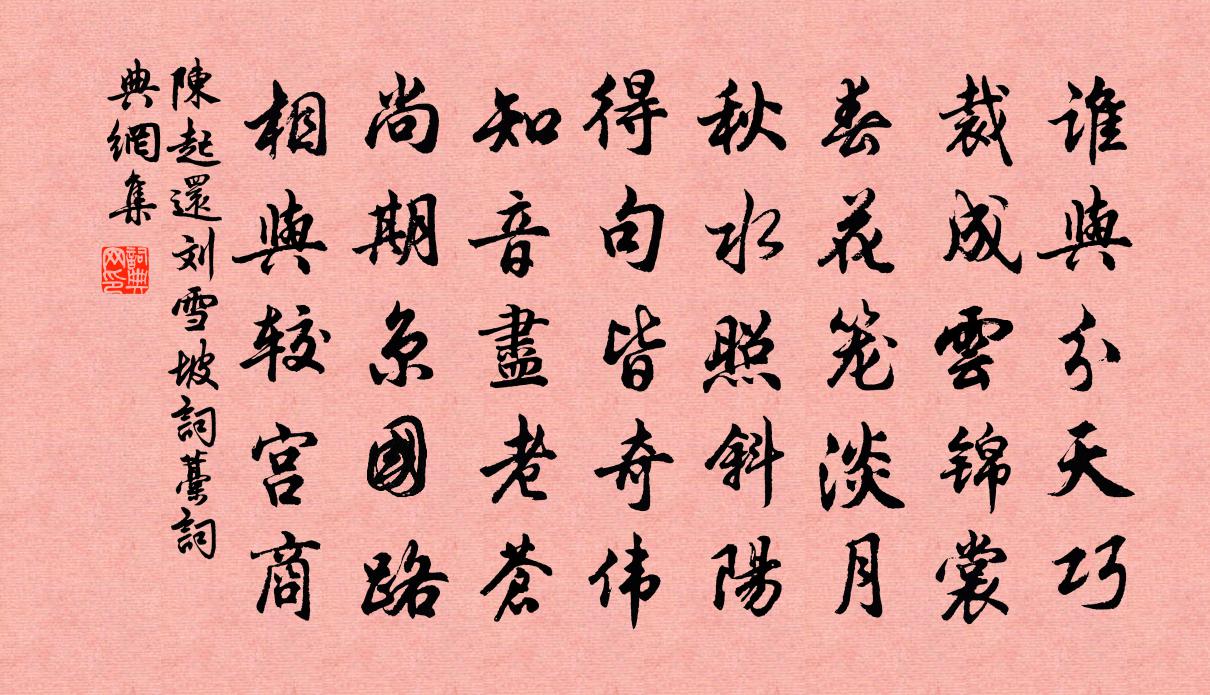 谁與分天巧
裁成雲錦裳
春花笼淡月
秋水照斜陽
得句皆奇伟
知音盡老蒼
尚期京國路
相與较宫商
陳起還刘雪坡詞藁詞
典網集
詞典
网印